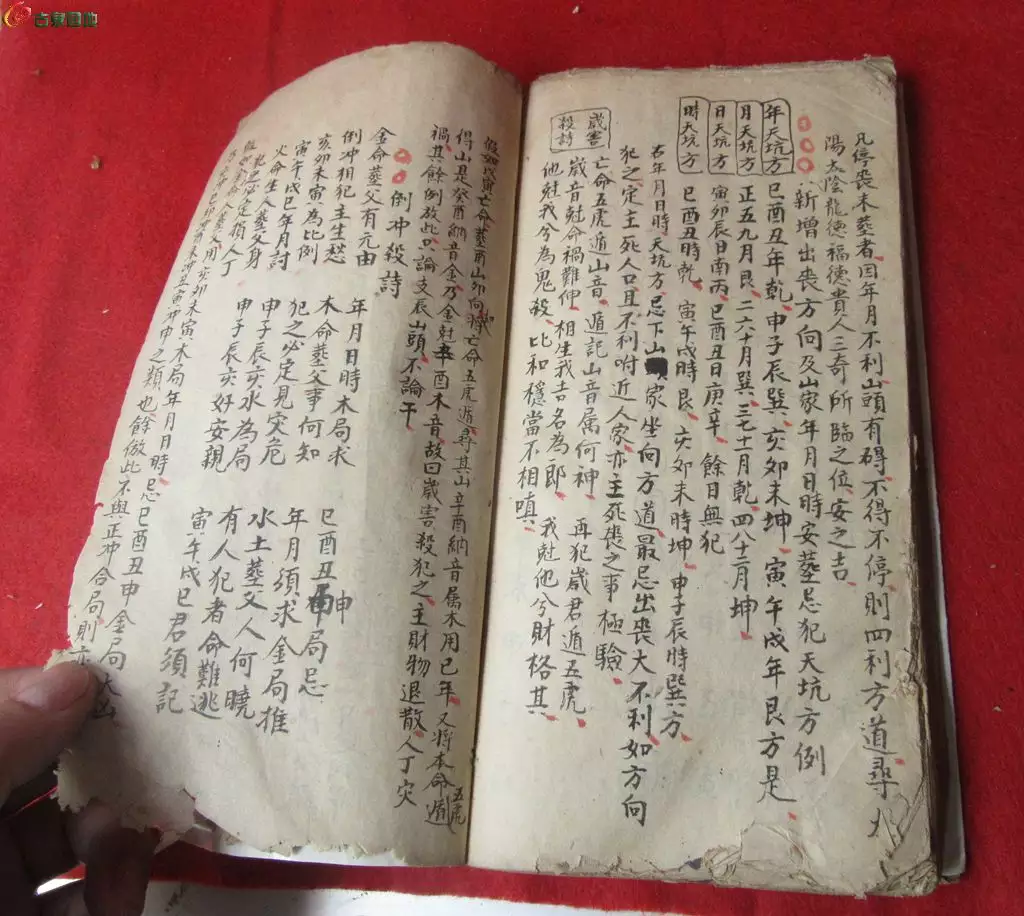 凡停喪未葬者因年月不利山頭有碍不得不停則四利方道尋
陽太陰龍德福德貴人三奇所臨之位安之吉
新增出喪方向及山家年月日時安葬忌犯天坑方例
年天坑方 巳酉丑年乾 申子辰巽 亥卯未坤 寅午戌年艮方是
月天坑方 正五九月艮 二六十月巽 三七十一月乾 四八十二月坤
日天坑方 寅卯辰日南丙 巳酉丑日庚辛 餘日無犯
時天坑方 巳酉丑時乾 寅午戌時艮 亥卯未時坤 申子辰時巽方
右年月日時天坑方忌下山家坐向方道最忌出喪大不利如方向
犯之定主死人口且不利附近人家亦主死喪之事極驗
歲害殺詩
亡命五虎遁山音 遁記山音属何神 再犯歲君遁五虎
歲音尅命禍難伸 相生我吉名為郎 我尅他兮財格其
他尅我兮為鬼殺 比和穩當不相嗔
假如戊寅亡命葬酉山卯向將亡命五虎遁尋其山辛酉納音属木用巳年又將本命遁五虎
得山是癸酉納音金乃金尅辛酉木音故曰歲害殺犯之主財物退散人丁灾
禍其餘例放此只論支辰山頭不論干
倒冲殺詩
金命葬父有元由 年月日時木局求 巳酉丑申局忌
倒冲相犯主生愁 木命葬父事何知 年月須求金局推
亥卯未寅為比例 犯之必定見灾危 水土葬父人何曉
寅午戌巳年月討 申子辰亥水為局 有人犯者命難逃
火命生人葬父身 申子辰亥好安親 寅午戌巳君須記
犯之必定損人丁
假如金命人葬父用亥卯未寅木局年月日時忌巳酉丑申金局大凶
丑寅冲申之類也餘倣此不與正冲合局則亦